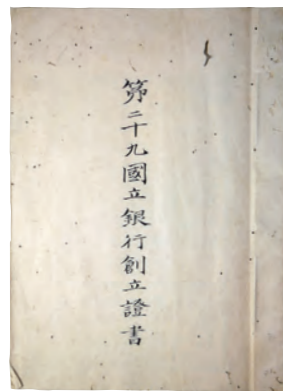 第二十九國立銀行創立證書